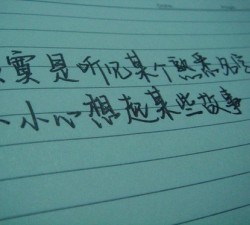 寞是听见某个熟悉名字
小心想起某些故事